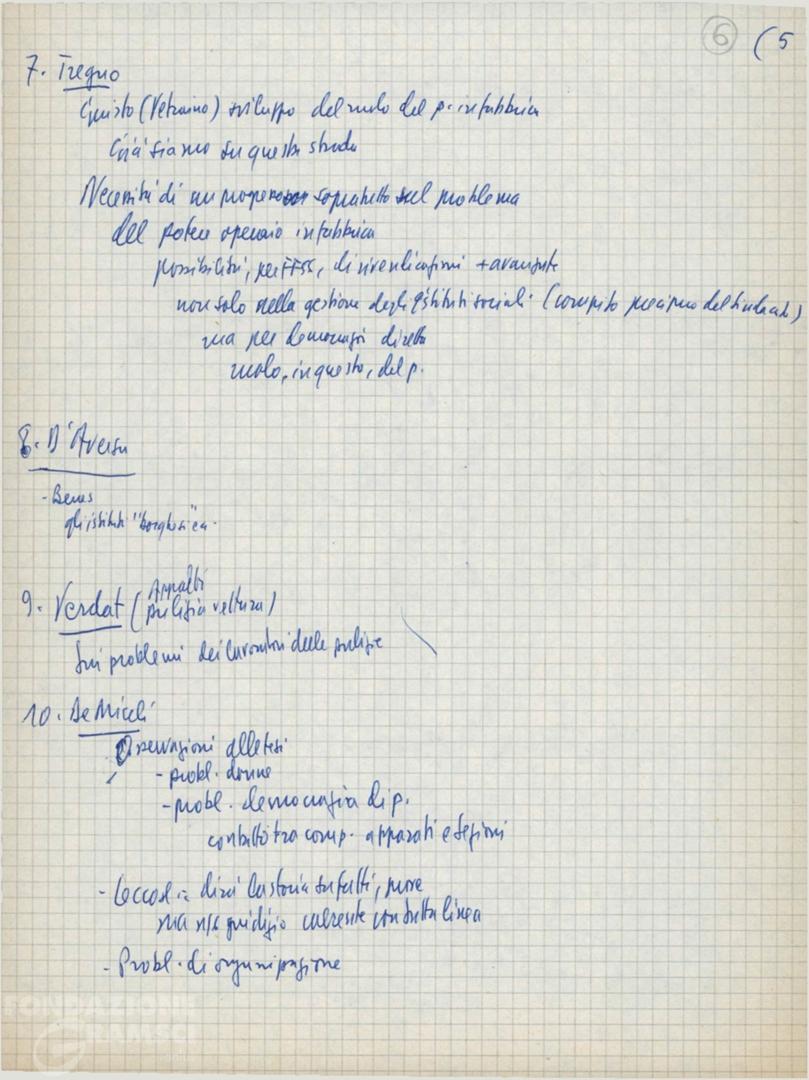 6 (5
7. Tregno
Giusto (Vetraino) sviluppo del ruolo del p. in fabbrica
Già siamo su questa strada
Necessità di un progresso soprattutto sul problema
del potere operaio in fabbrica
possibilità, per FFSS, di rivendicazioni + avanzate
non solo nella gestione degli istituti sociali (compito precipuo del sindacato)
ma per democrazia diretta
ruolo, in questo, del p.
8. D'Aversa
- Benes
gli istituti "borghesi" ec.
9. Verdat (Appalti
pulizia vettura)
Sui problemi dei lavoratori delle pulizie
10. De Miceli
Osservazioni alle tesi
- probl. donne
- probl. democrazia di p.
contatto tra comp. apparati e sezioni
- dirà la storia su fatti,
ma ns. giudizio coerente con tutta linea
- Probl. di organizzazione
FONDAZIONE
GRAMSCI